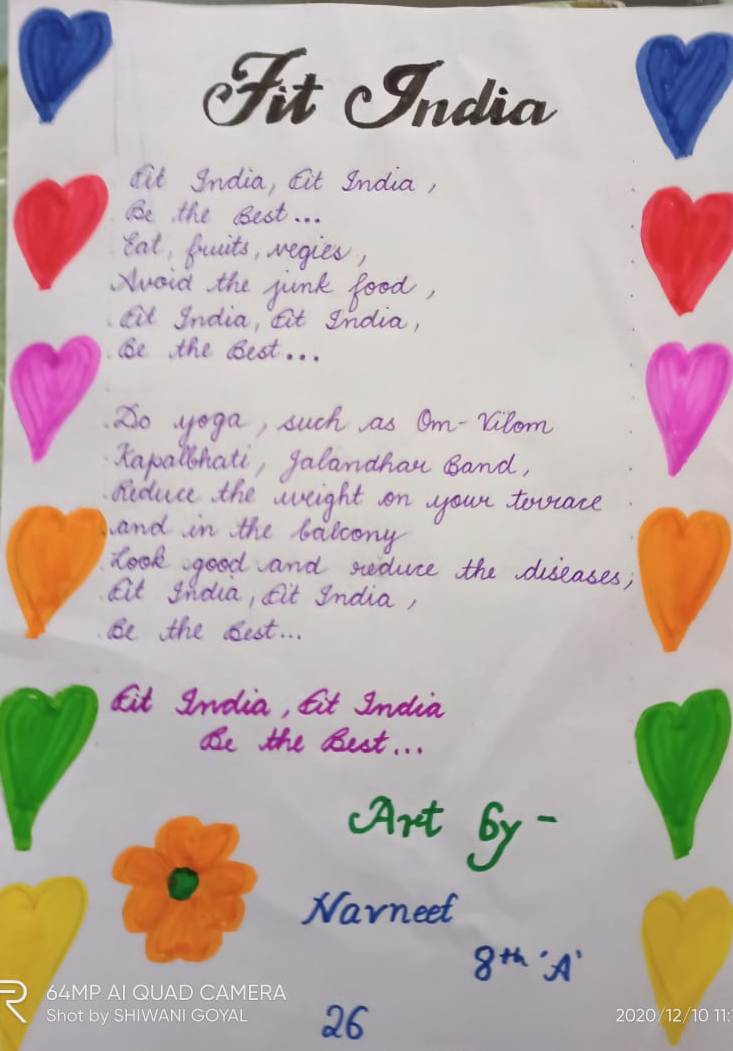 Fit India
Fit India, Fit India,
Be the Best...
Eat, fruits, vegies,
Avoid the junk food,
Fit India, Fit India,
Be the Best...
Do yoga, such as Om-Vilom
Kapalbhati, Jalandhar Band,
Reduce the weight on your terrace
and in the balcony
Look good and reduce the diseases,
Fit India, Fit India,
Be the Best...
Fit India, Fit India
Be the Best...
Art by -
Navneet
8th 'A'
26
64MP AI QUAD CAMERA
Shot by SHIWANI GOYAL
2020/12/10 11: